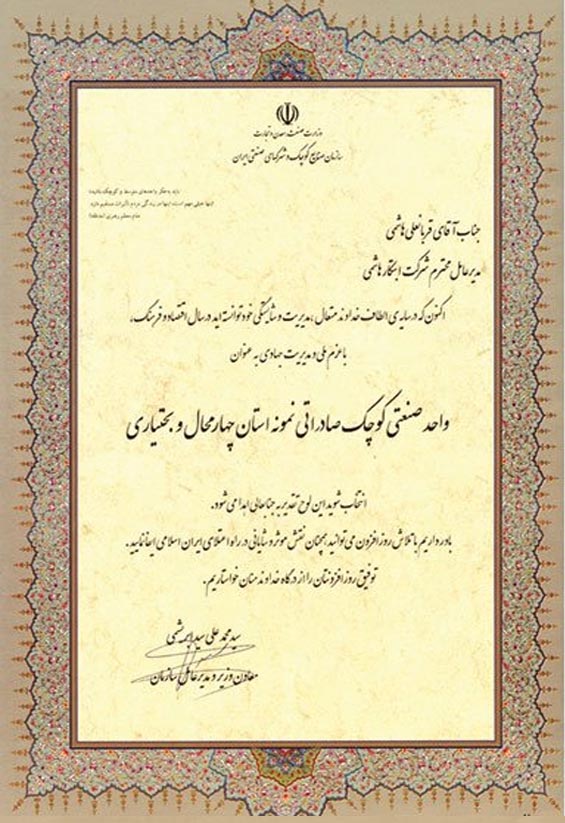 وزارت صنعت، معدن و تجارت
سازمان صنایع کوچک و شهرکهای صنعتی ایران
باید به فکر واحدهای متوسط و کوچک باشید؛
اینها خیلی مهم است، اینها در زندگی مردم تأثیرات مستقیم دارد.
مقام معظم رهبری (مدظله)
جناب آقای قربانعلی هاشمی
مدیرعامل محترم شرکت ابتکار هاشمی
اکنون که در سایه‌ی الطاف خداوند متعال، مدیریت و شایستگی خود توانسته اید در سال اقتصاد و فرهنگ،
با عزم ملی و مدیریت جهادی به عنوان
واحد صنعتی کوچک صادراتی نمونه استان چهارمحال و بختیاری
انتخاب شوید این لوح تقدیر به جنابعالی اهدا می شود.
باور داریم با تلاش روزافزون می توانید همچنان نقش موثر و شایانی در راه اعتلای ایران اسلامی ایفا نمایید.
توفیق روزافزونتان را از درگاه خداوند منان خواستاریم.
سید محمد علی سید ابریشمی
معاون وزیر و مدیرعامل سازمان